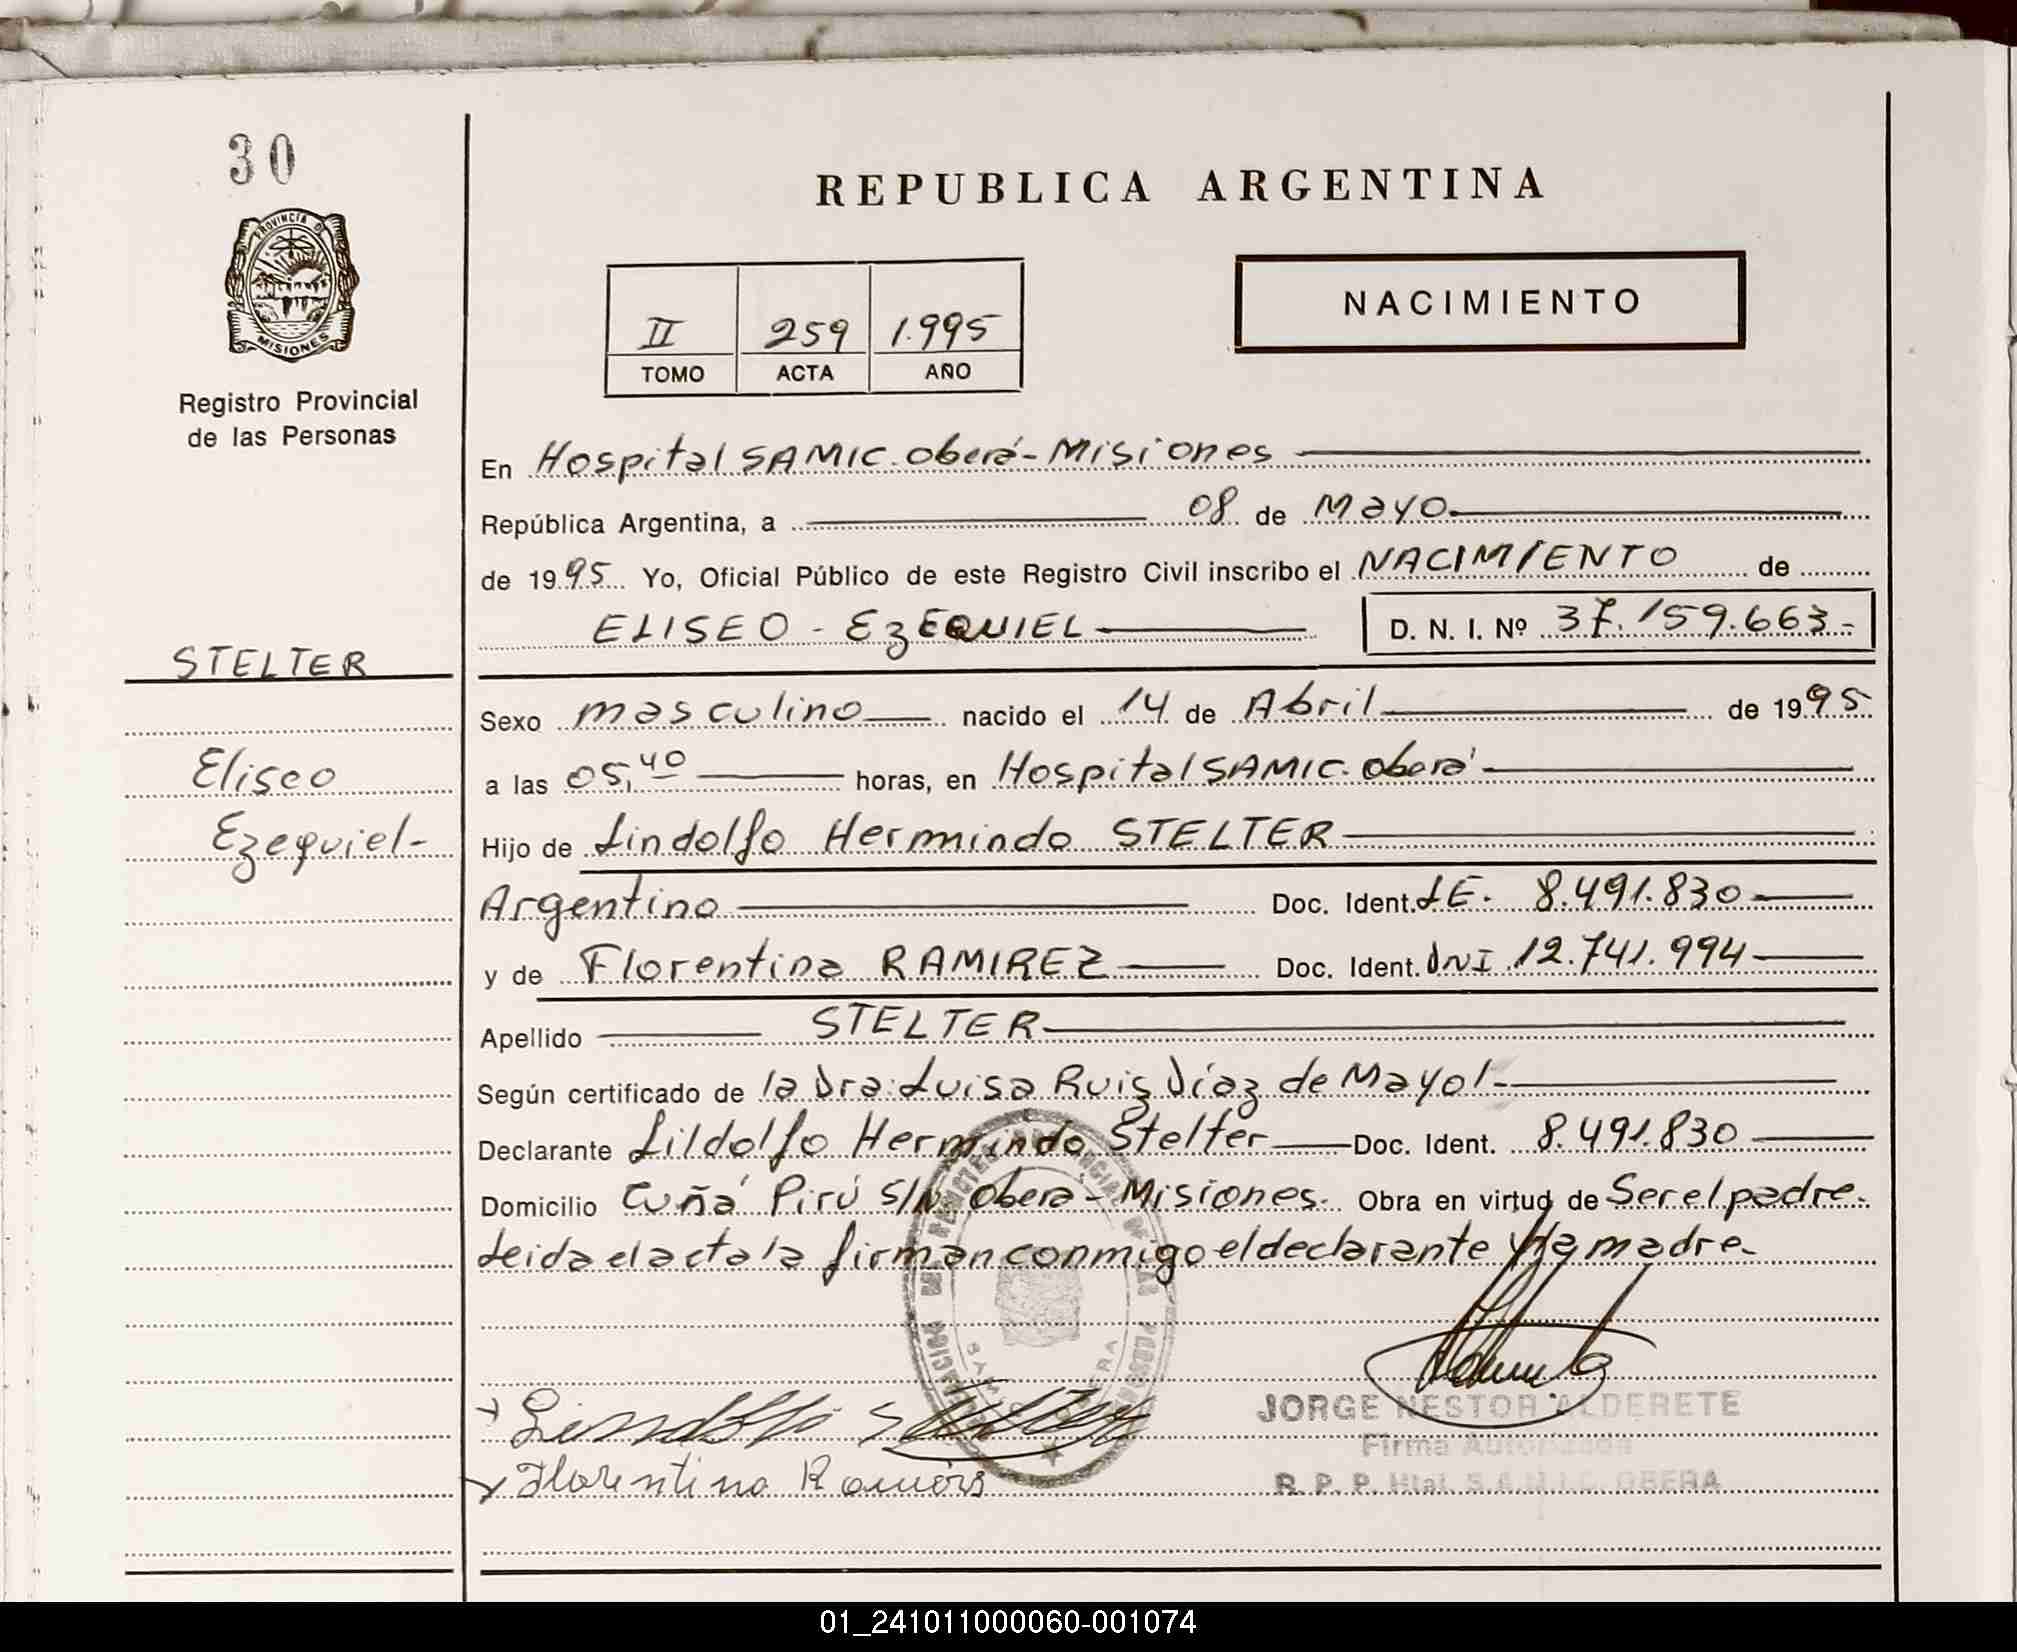 30
REPUBLICA ARGENTINA
PROVINCIA DE
MISIONES
Registro Provincial
de las Personas
II 259 1.995
TOMO ACTA AÑO
NACIMIENTO
En Hospital SAMIC. Oberá - Misiones
República Argentina, a 08 de Mayo
de 1995 Yo, Oficial Público de este Registro Civil inscribo el NACIMIENTO de
ELISEO - EzEQUIEL D. N. I. Nº 37.159.663.-
STELTER
Sexo masculino nacido el 14 de Abril de 1995
Eliseo
a las 05,40 horas, en Hospital SAMIC. Oberá
Ezequiel-
Hijo de Lindolfo Hermindo STELTER
Argentino Doc. Ident. LE. 8.491.830
y de Florentina RAMIREZ Doc. Ident. DNI 12.741.994
Apellido STELTER
Según certificado de la Dra: Luisa Ruiz Díaz de Mayol-
Declarante Lildolfo Hermindo Stelter Doc. Ident. 8.491.830
Domicilio Cuñá Pirú S/N Oberá - Misiones. Obra en virtud de Ser el padre.
Leida el acta la firman conmigo el declarante y la madre-
JORGE NESTOR ALDERETE
Firma Autorizada
R. P. P. Htal. S.A.M.I.C. OBERA
01_241011000060-001074